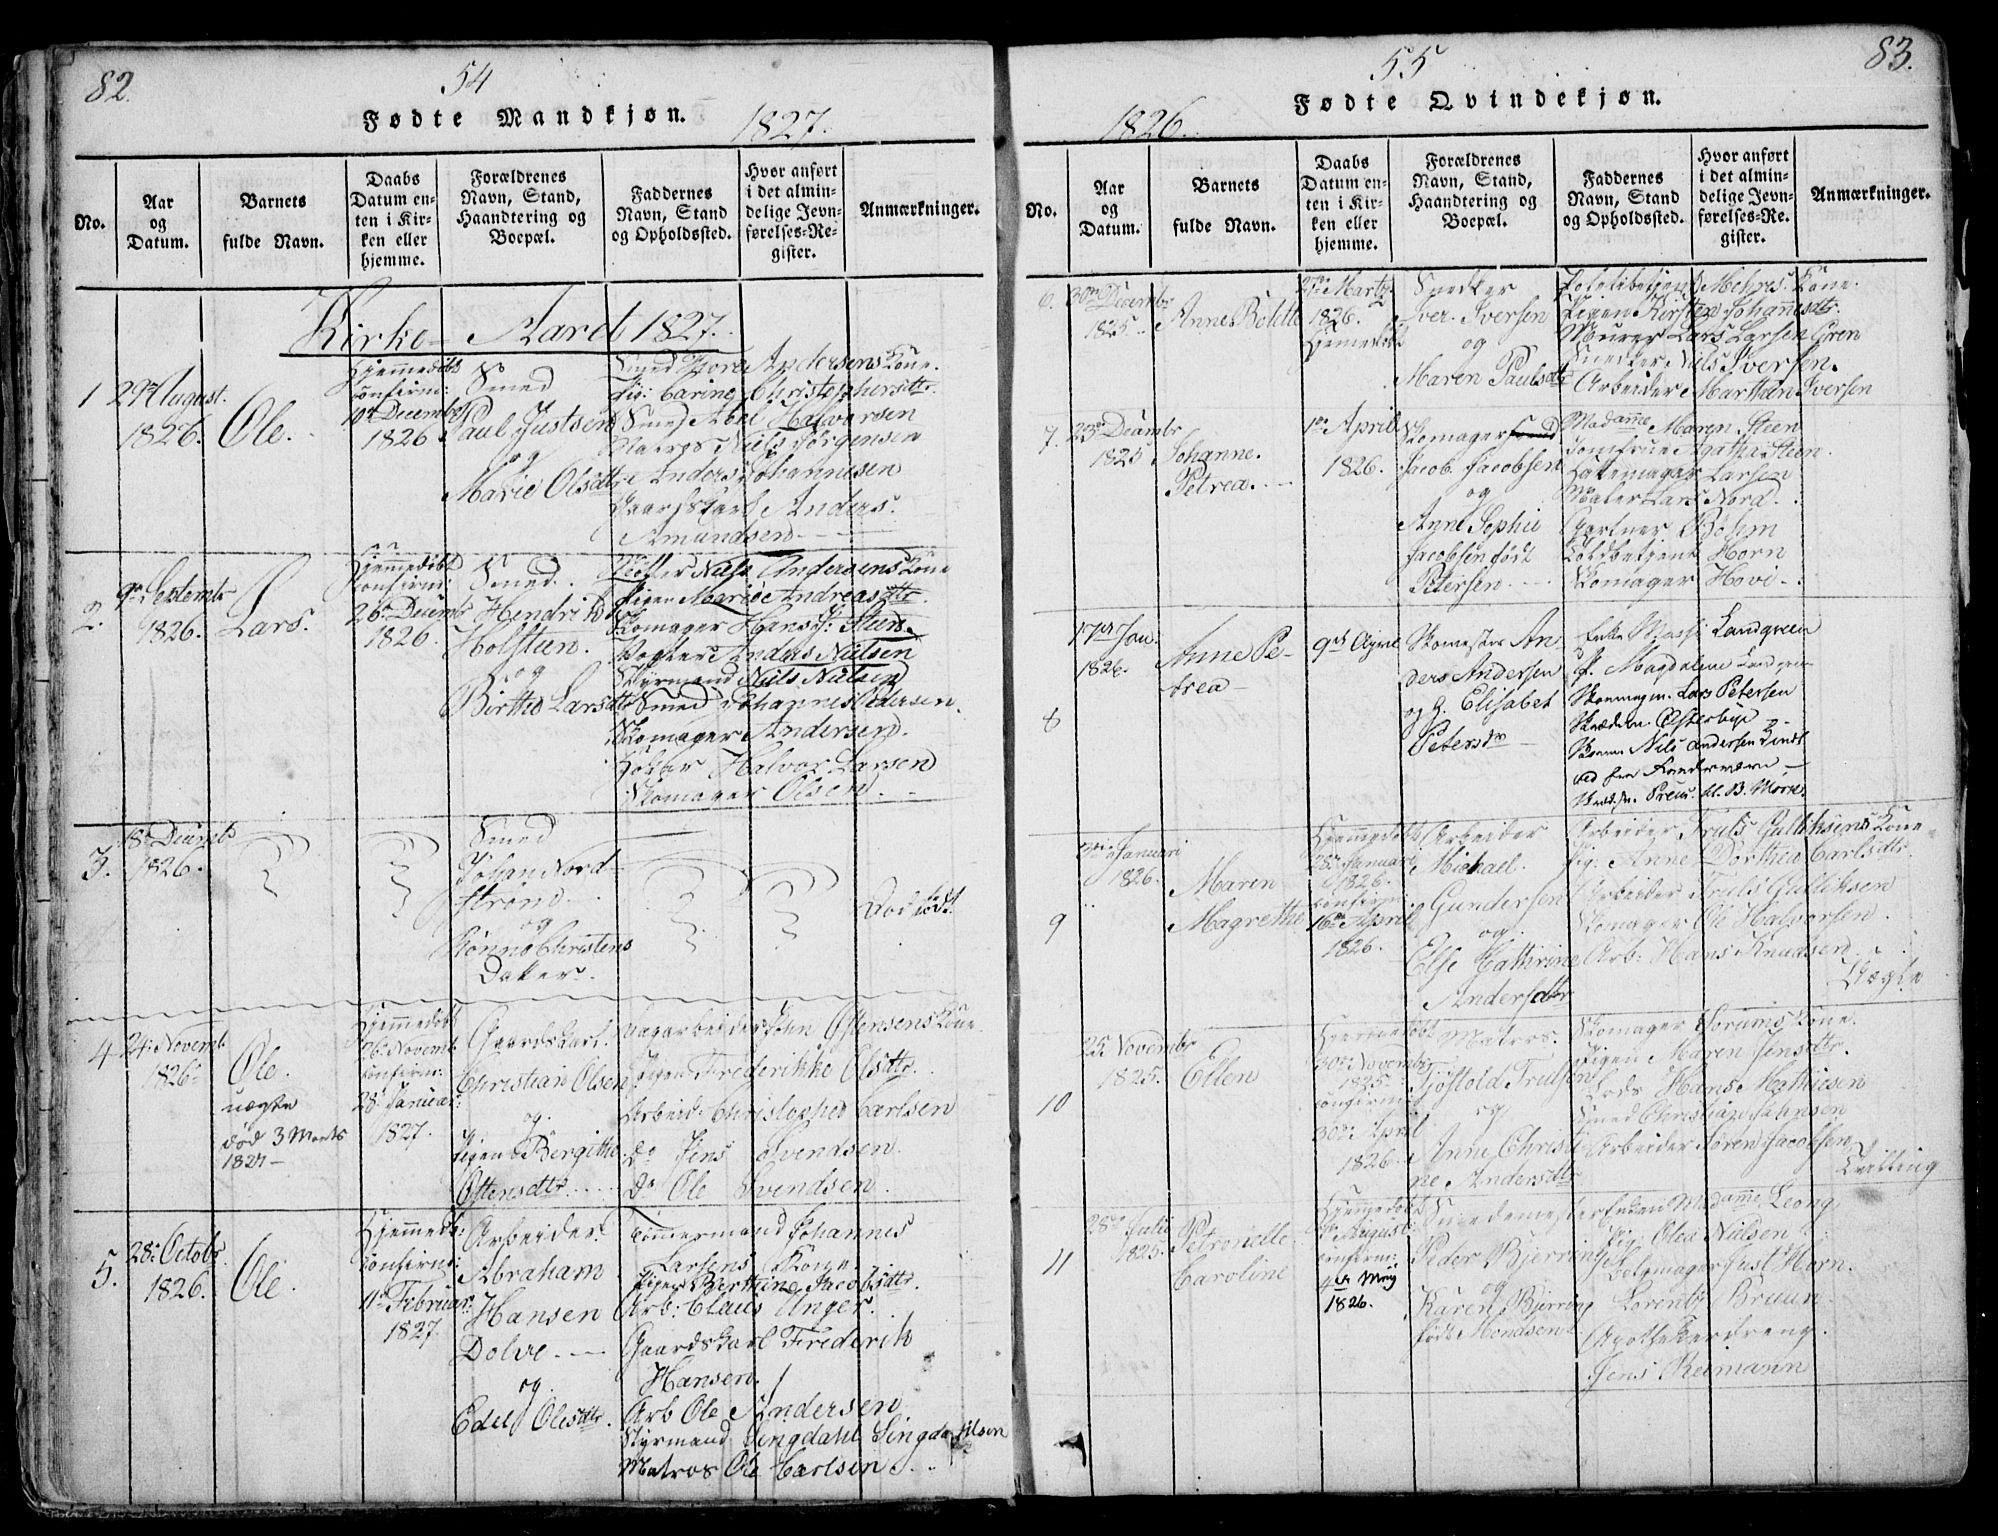 82.
54
Fødte Mandkjøn. 1827.
No.
Aar
og
Datum.
Barnets
fulde Navn.
Daabs
Datum en-
ten i Kir-
ken eller
hjemme.
Forældrenes
Navn, Stand,
Haandtering og
Boepæl.
Faddernes
Navn, Stand
og Opholdssted.
Hvor anført
i det almin-
delige Jevn-
førelses-Re-
gister.
Anmærkninger.
Kirke-Aaret 1827.
1
29de August
1826.
Ole.
Hjemmedøbt
Confirm:
10de Decembr
1826
Smed
Paul Justsen
og
Marie Olsdttr
Smed Andersens Kone
Pig: Carine Christophersdttr
Smed Abel Halvorsen
Matros Niels Jørgensen
Anders Johannesen
Gaardskarl Anders
Amundsen
2.
9de Septembr
1826.
Lars.
Hjemmedøbt
Confirm:
26de Decembr
1826.
Smed.
Hendrik
Holsten.
og
Birthe Larsdttr
Niels Andersens Kone
Pigen Marie Andreasdttr.
Skomager Hans Steen.
Anders Nielsen
Styrmand Niels Nielsen
Smed Johannes Pedersen.
Skomager Andersen.
Halvor Larsen
Skomager Olsen.
3.
18de Decembr
1826.
Smed
Johan Nord-
strøm
og
Christens
Daker.
Dødfødt
4
24. Novemb.
1826
Ole.
uægte
død 3 Marts
1827
Hjemmedøbt
26. Novemb.
Confirm:
28. Januar:
1827.
Gaardskarl
Christian Olsen
og.
Pigen Bergitthe
Ostensdttr.
Dagarbeider John Ostensens Kone.
Pigen Frederikke Olsdttr.
Arbeid: Christopher Carlsen
Do Jens Svendsen.
Do Ole Svendsen.
5.
28. Octobr
1826.
Ole.
Hjemmedb:
Confirm:
11. Februar:
1827.
Arbeider.
Abraham
Hansen
Dolve.
og.
Edel Olesdttr.
Tømmermand Johannes
Larsens Kone.
Pigen Berthine Jacobsdttr.
Arb: Claus Unger.
Gaardskarl Frederik
Hansen.
Arb Ole Andersen
Styrmand
Matros Ole Carlsen.
83.
55
1826. Fødte Qvindekjøn.
No.
Aar
og
Datum.
Barnets
fulde Navn.
Daabs
Datum en-
ten i Kir-
ken eller
hjemme.
Forældrenes
Navn, Stand,
Haandtering og
Boepæl.
Faddernes
Navn, Stand
og Opholdssted.
Hvor anført
i det almin-
delige Jevn-
førelses-Re-
gister.
Anmærkninger.
6.
30de Decembr
1825.
Anne Bolette
27de Marts
1826.
Hjemmedøbt
Snedker
Iver Iversen
og
Maren Paulsdttr
Politibetjent Mehres Kone.
Pigen Kirsten Johannesdttr
Muurer Lars Larsen Gren
Snedker Niels Iversen.
Arbeider Marthan Iversen
7.
23de Decembr
1825
Johanne
Petrea.
1de April
1826.
Skomager
Jacob Jacobsen
og
Anne Sophie
Jacobsen født
Petersen
Madamme Maren Steen
Jomfrue Agathe Steen.
Hattemager Larsen
Maler Lars Nord.
Gartner Bøhm
Toldbetjent Horn
Skomager Hovi
8
17de Jan
1826.
Anne Pe-
trea
9de April
Skomester An-
ders Andersen
og H. Elisabet
Petersdtr
Enke Massi Landgreen
P. Magdalene
Skomagm. Lars Petersen
Skrædm. Østerbye
Nils Andersen
9
3die Januari
1826.
Maren
Magrethe
Hjemmedøbt
28de Januari
1826.
Confirm
16de April
1826.
Arbeider
Michael
Gundersen
og.
Else Cathrine
Andersdttr
Arbeider Truls Gulliksens Kone
Pig: Anne Dorthea Carlsdttr.
Arbeider Truls Gulliksen
Skomager Ole Halvorsen.
Arb: Hans Knudsen.
Uægte
10
25. Novembr
1825.
Ellen
Hjemmedøbt
30de Novembr
1825.
Confirm
30de April
1826.
Matros.
Tjostold Trulsen
og
Anne Christi-
ne Andersdttr
Skomager Sorums Kone.
Pigen Maren Jensdttr.
Lods Hans Mathiesen
Smed Christian Johnsen
Arbeider Søren Jacobsen
Tvilling
11
28de Julii
1825.
Petronelle
Caroline
Hjemmedøbt
August:
Confirm:
4de May
1826.
Smedemester
Peder Bjerring
og
Karen Bjerring
født Mondsen
Enken Madamme Leong
Pig: Olea Nielsen
Just Horn.
Lorentz Bruun
Apothekerdreng.
Jens Reimann